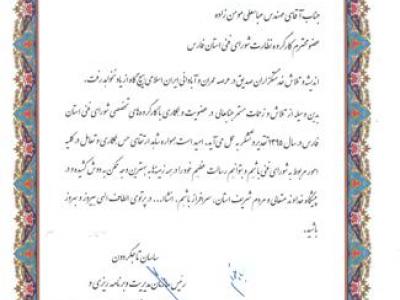 جناب آقای مهندس عباسعلی مومن زاده
عضو محترم کارگروه نظارت شورای فنی استان فارس
اندیشه و تلاش خدمتگزاران صدیق در عرصه عمران و آبادانی ایران اسلامی هیچ گاه از یاد نخواهد رفت.
بدین وسیله از تلاش و زحمات مستمر جنابعالی در عضویت و همکاری با کارگروه های تخصصی شورای فنی استان
فارس در سال ۱۳۹۵ تقدیر و تشکر به عمل می آید. امید است همواره شاهد ارتقای حس همکاری و تعامل در کلیه
امور مربوط به شورای فنی باشیم و بتوانیم رسالت عظیم خود را در همه زمینه ها به بهترین وجه ممکن به دوش کشیده و در
پیشگاه خداوند متعالی و مردم شریف استان، سرافراز باشیم. انشاا... در پرتوی الطاف الهی پیروز و بهروز
باشید.
ساسان تاجگردون
رئیس سازمان مدیریت و برنامه ریزی و